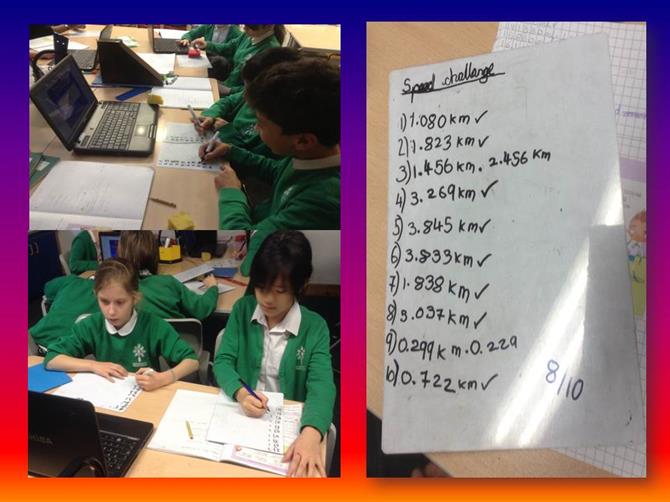 Speed challenge
1) 1.080 km ✓
2) 1.823 km ✓
3) 1.456 km. 2.456 km
4) 3.269 km ✓
5) 3.845 km ✓
6) 3.833 km ✓
7) 1.838 km ✓
8) 3.037 km ✓
9) 0.299 km. 0.229
10) 0.722 km ✓
8/10
TOSHIBA